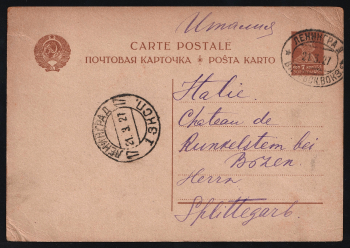 Италия
CARTE POSTALE
ПОЧТОВАЯ КАРТОЧКА ★ POŜTA KARTO
ЛЕНИНГРАД
21 X 27
ЛЕНИНГРАД
21 X 27
I ЭКСП.
Italie.
Chateau de
Runkelstem bei
Bozen
Herrn
Splittegarb.